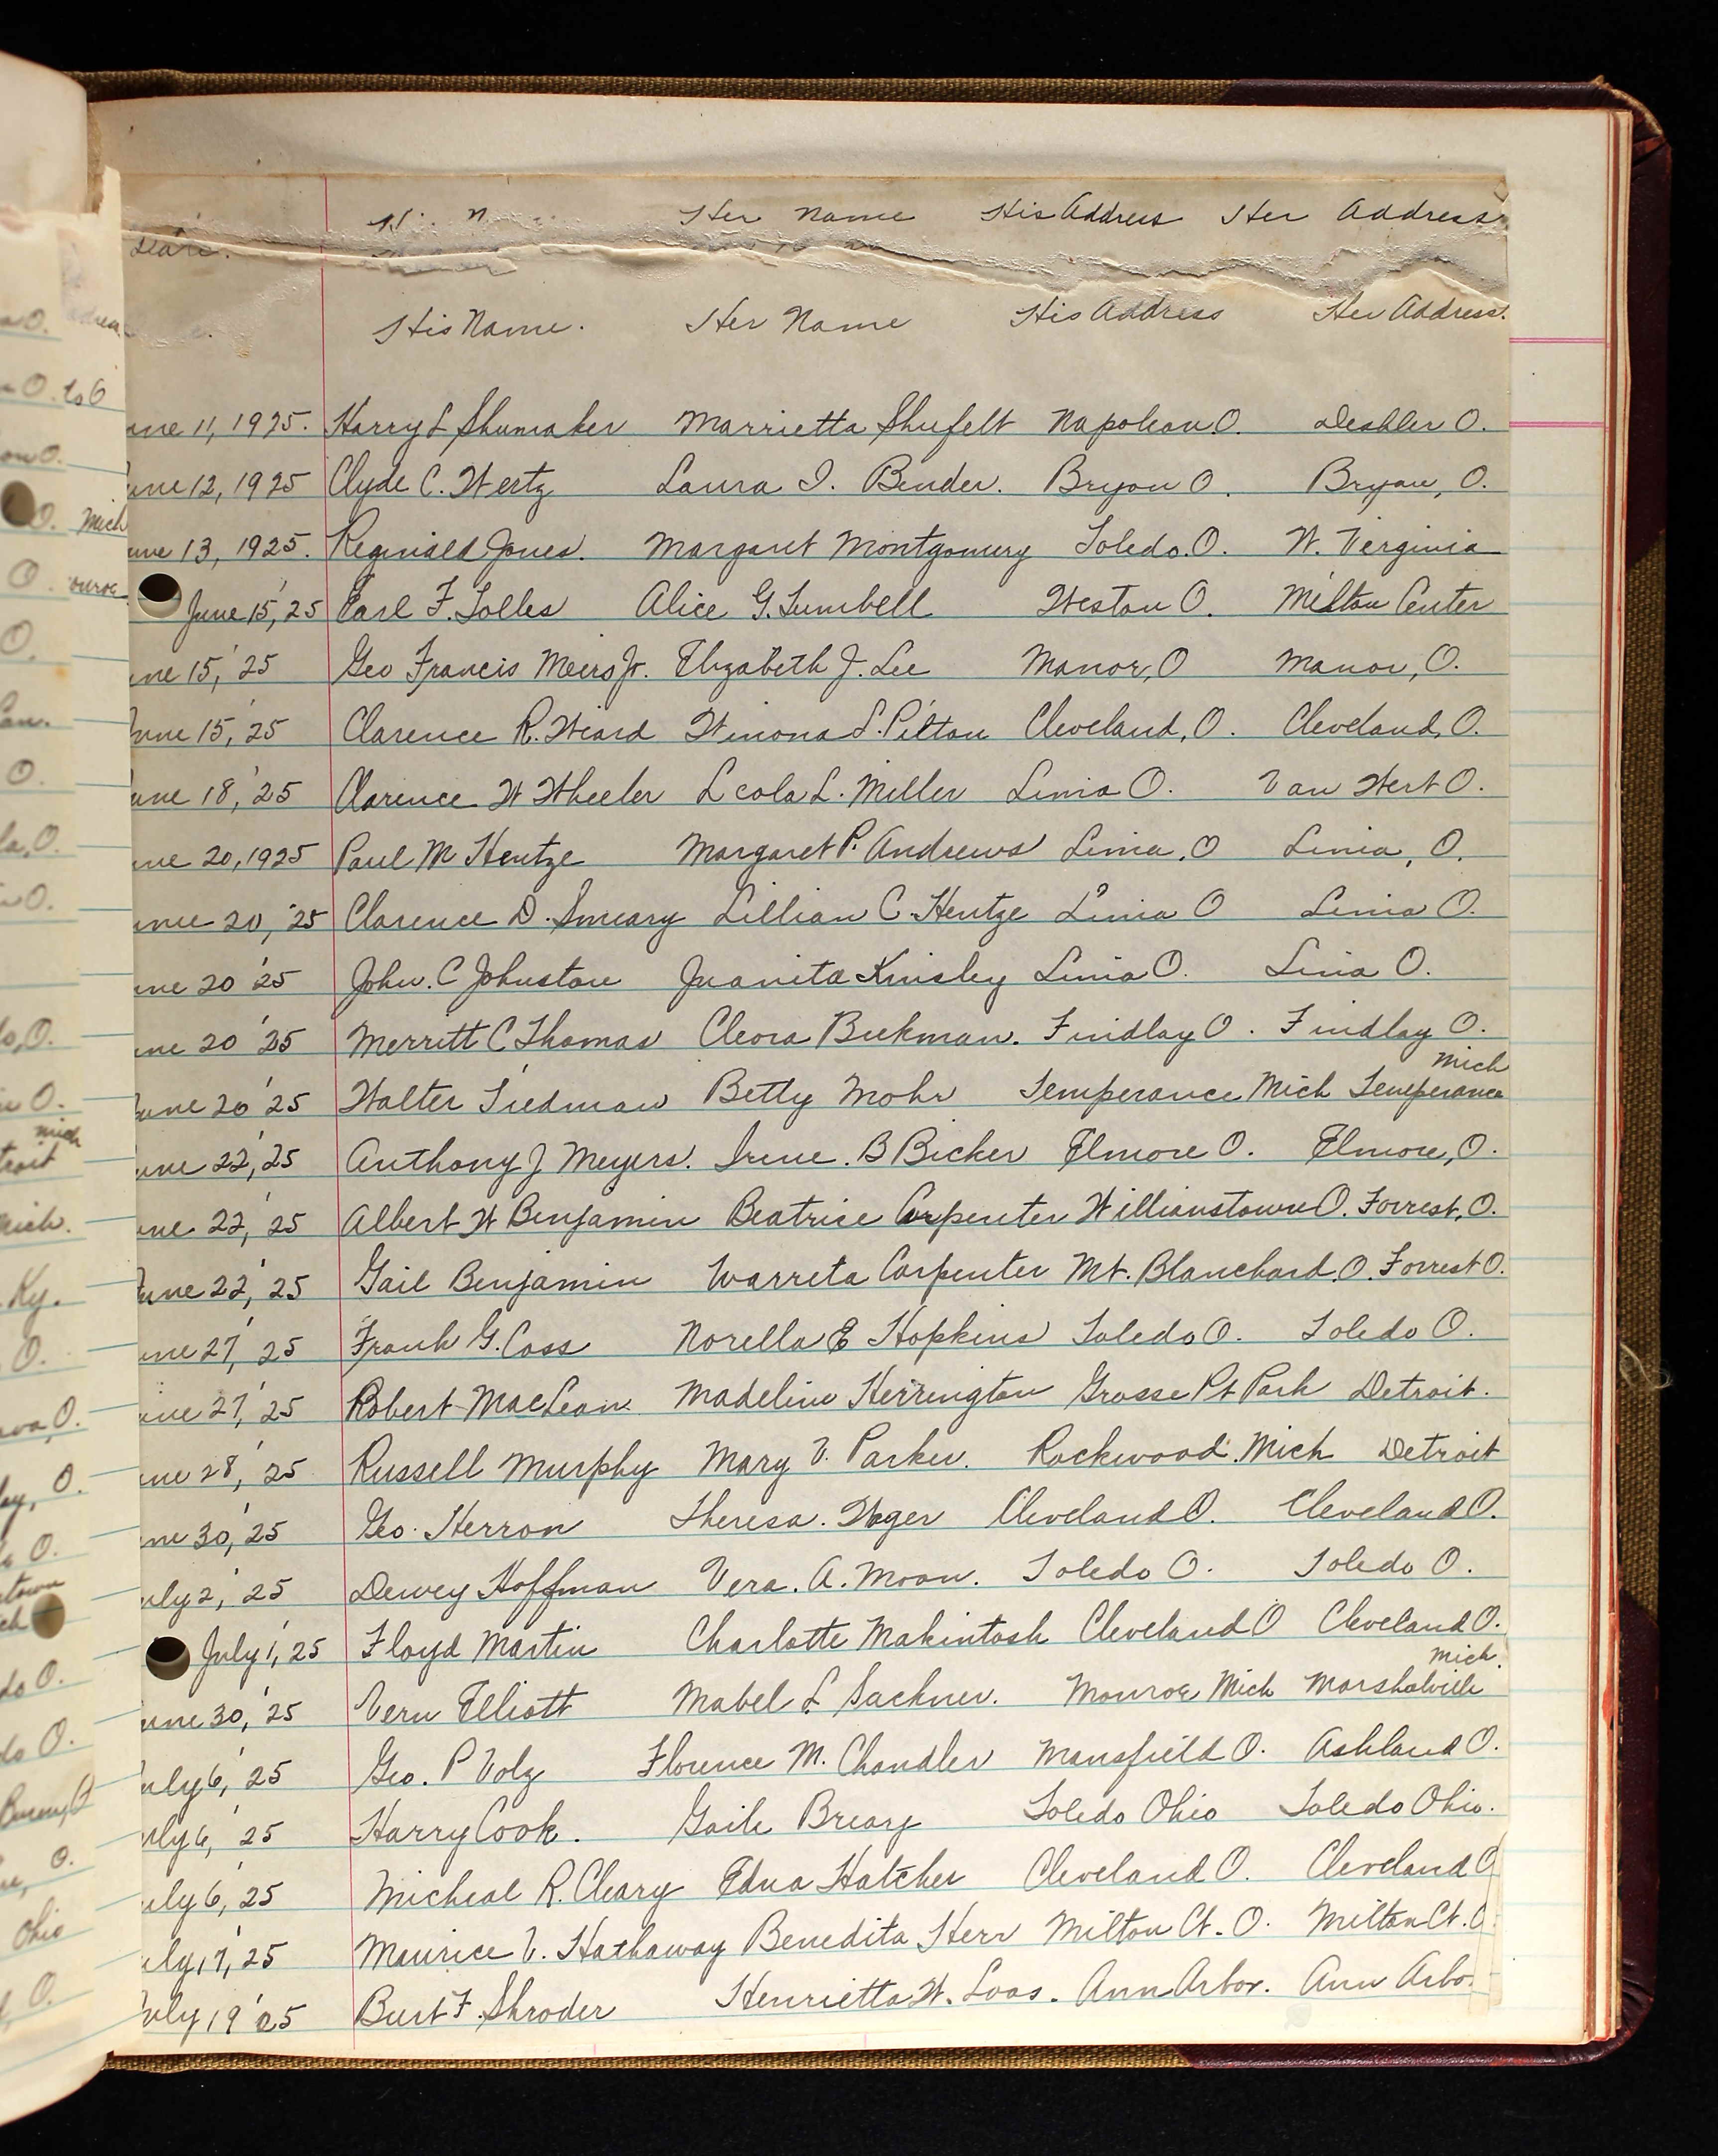 Her Name His Address Her Address
Date.
His Name. Her Name His Address Her Address.
une 11, 1925. Harry L Shumaker Marrietta Shufelt Napoleon O. Deshler O.
une 12, 1925 Clyde C. Wertz Laura I. Bender. Bryan O. Bryan, O.
une 13, 1925. Reginald Jones. Margaret Montgomery Toledo. O. W. Verginia
June 15, '25 Earl F. Lolles Alice G. Tumbell Weston O. Milton Center
une 15, '25 Geo Francis Meers Jr. Elizabeth J. Lee Manor, O Manor, O.
June 15, '25 Clarence R. Weard Winona L. Pilton Cleveland, O. Cleveland, O.
une 18, '25 Clarence W Wheeler Leola L. Miller Lima O. Van Wert O.
une 20, 1925 Paul M Hentze Margaret P. Andrews Lima, O Lima, O.
une 20, '25 Clarence D. Smeary Lillian C. Hentze Lima O Lima O.
une 20 '25 John. C Johnston Juanita Knisley Lima O. Lima O.
une 20 '25 Merritt C Thomas Cleora Beekman. Findlay O. Findlay O.
Mich
June 20 '25 Walter Tiedman Betty Mohr Temperance Mich Temperance
une 22, '25 Anthony J Meyers. Irene. B Bicker Elmore O. Elmore, O.
une 22, '25 Albert W Benjamin Beatrice Carpenter Willianstown O. Forrest, O.
June 22, '25 Gail Benjamin Warreta Carpenter Mt. Blanchard, O. Forrest O.
une 27, '25 Frank G. Coss Norella E Hopkins Toledo O. Toledo O.
une 27, '25 Robert MacLean Madeline Herrington Grosse Pt Park Detroit.
une 28, '25 Russell Murphy Mary V. Parker. Rockwood. Mich Detroit
une 30, '25 Geo. Herron Theresa. Wager Cleveland O. Cleveland O.
uly 2, '25 Dewey Hoffman Vera. A. Moon. Toledo O. Toledo O.
July 1, '25 Floyd Martin Charlotte Makintosh Cleveland O Cleveland O.
Mich.
une 30, '25 Vern Elliott Mabel L Sackner. Monroe Mich Marshalville
uly 6, '25 Geo. P Volz Florence M. Chandler Mansfield O. Ashland O.
uly 6, '25 Harry Cook. Gaile Breary Toledo Ohio Toledo Ohio.
uly 6, '25 Micheal R. Cleary Edna Hatcher Cleveland O. Cleveland O
uly 17, '25 Maurice V. Hathaway Benedita Herr Milton Ct. O. Milton Ct. O.
July 19 '25 Burt F. Shroder Henrietta W. Loos. Ann Arbor. Ann Arbo